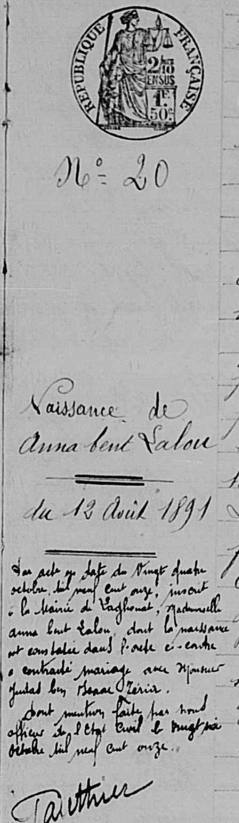 RÉPUBLIQUE FRANÇAISE
2/10
EN SUS
1F
50c
No = 20
Naissance de
Anna bent Lalou
du 12 Août 1891
Par acte en date du Vingt quatre
octobre mil neuf cent onze, inscrit
à la Mairie de Laghouat, Mademoiselle
Anna bent Lalou, dont la naissance
est constatée dans l'acte ci-contre
a contracté mariage avec Monsieur
Judas ben Isaac
Dont mention faite par nous
officier de l'Etat Civil le vingt six
octobre mil neuf cent onze.